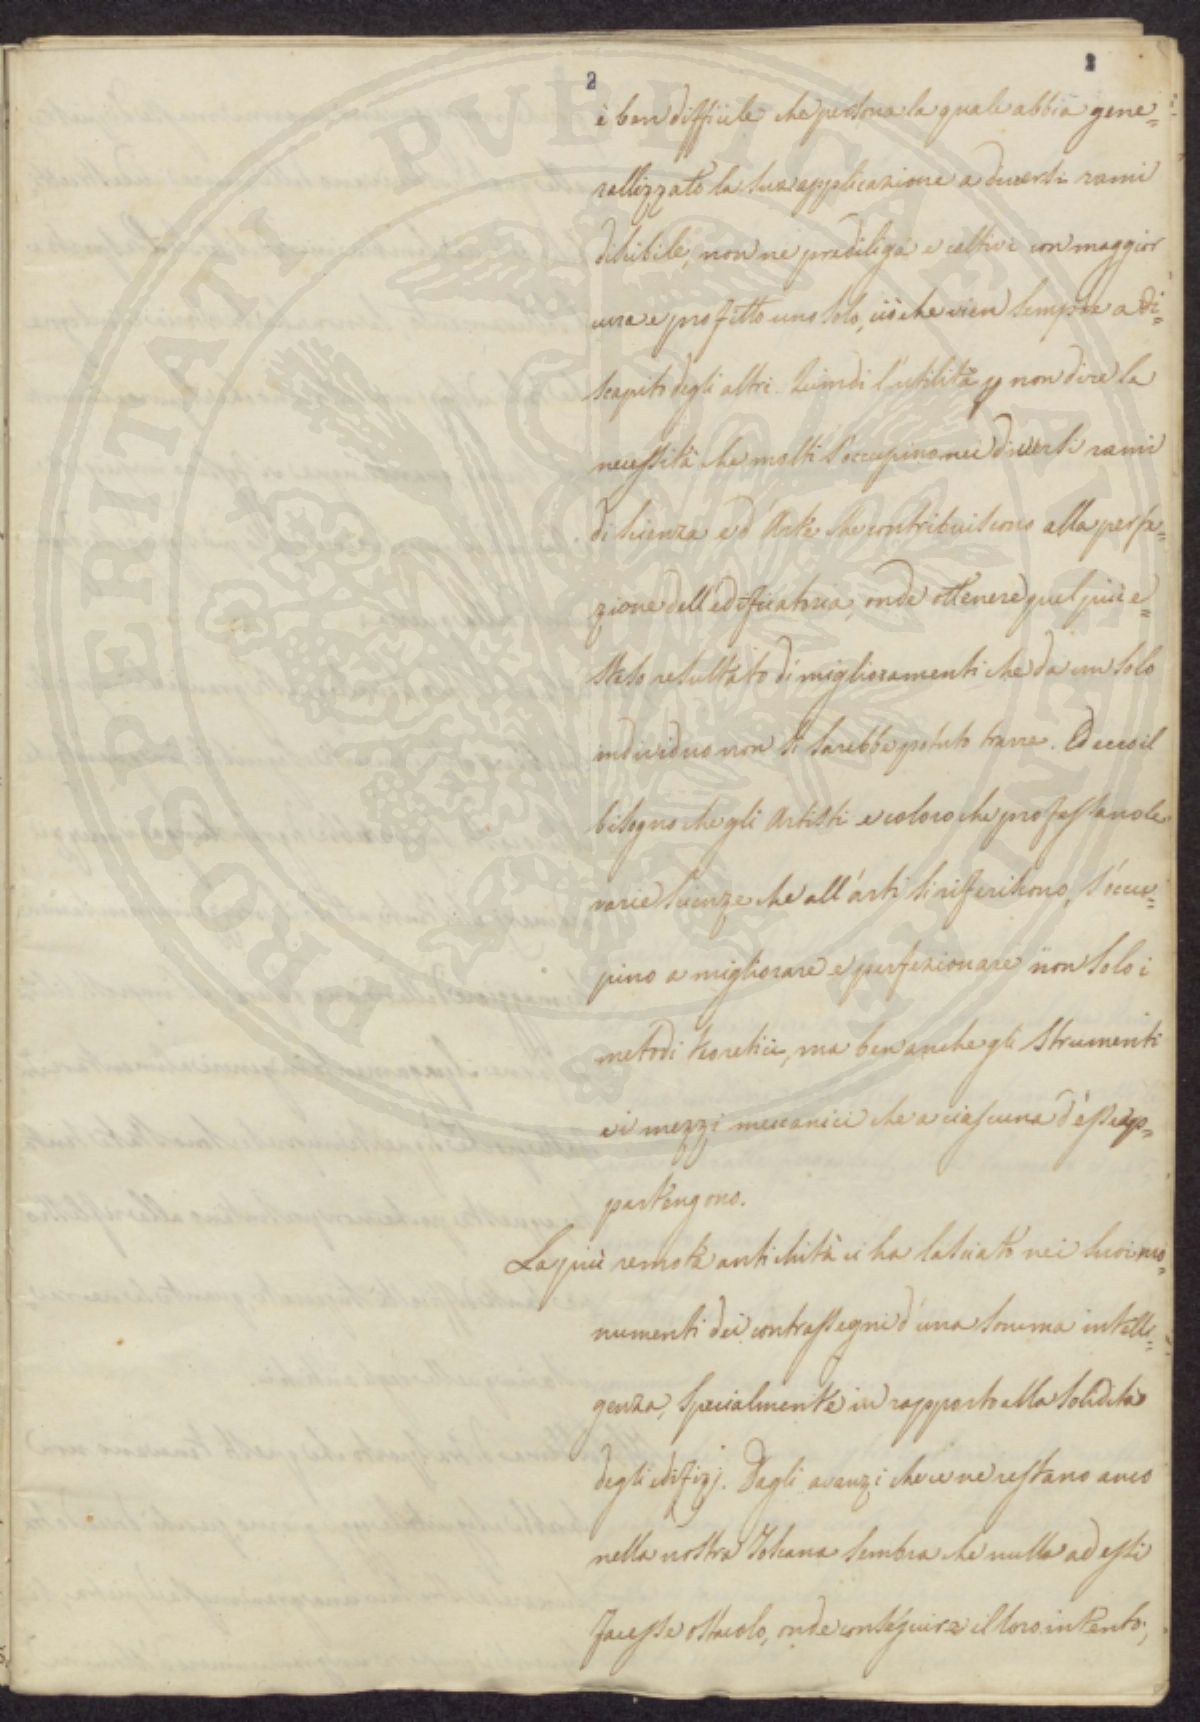 2
1
è ben difficile che persona la quale abbia gene=
rallizzato la sua applicazione a diversi rami
di bibile, non ne prediliga e coltivi con maggior
cura e profitto uno solo, ciò che vien sempre a di=
scapito degli altri. Quindi l'utilità p non dire la
necessità che molti s'occupino nei diversi rami
di scienza e d'Arte che contribuiscono alla perfe=
zione dell'edificatoria, onde ottenere quel più e=
steso resultato di miglioramenti che da un solo
individuo non si sarebbe potuto trarre. Ed ecco il
bisogno che gli Artisti e coloro che professano le
varie scienze che all'arti si riferiscono, s'occu=
pino a migliorare e perfezionare non solo i
metodi teoretici, ma ben anche gli strumenti
e i mezzi meccanici che a ciascuna d'esse ap=
partengono.
La più remota antichità ci ha lasciato nei suoi mo=
numenti dei contrassegni d'una somma intelli=
genza, specialmente in rapporto alla solidità
degli edifizj. Dagli avanzi che ce ne restano anco
nella nostra Toscana sembra che nulla ad essi
facesse ostacolo, onde conseguire il loro intento;
PROSPERITATI PUBLICAE AUGENDAE